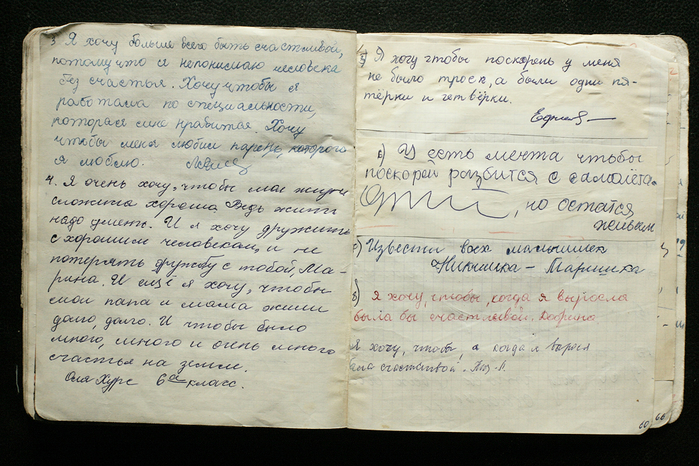 3. Я хочу больше всего быть счастливой,
потому что я непонимаю человека
без счастья. Хочу чтобы я
работала по специальности,
которая мне нравится. Хочу
чтобы меня любил парень, которого
я люблю.
4. Я очень хочу, чтобы моя жизнь
сложилась хорошо. Ведь жить
надо уметь. И я хочу дружить
с хорошим человеком, и не
потерять дружбу с тобой, Ма-
рина. И ещё я хочу, чтобы
мои папа и мама жили
долго, долго. И чтобы было
много, много и очень много
счастья на земле.
Оля Курс 6 а класс.
Я хочу чтобы поскорей у меня
не было троек, а были одни пя-
тёрки и четвёрки.
6) У есть мечта чтобы
поскорей розбится с самолёта.
, но остатся
живым
7) Известни всех малышек
Никишка - Маришка
8) Я хочу, чтобы, когда я выросла
была бы счастливой.
Я хочу, чтобы я когда я вырос
была счастливой!
60
66